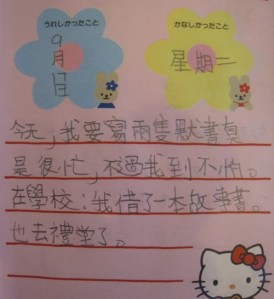 うれしかったこと
かなしかったこと
9
月
日
星期二
今天,我要寫兩隻默書真
是很忙,不過我到不怕。
在學校:我借了一本故事書。
也去禮堂了。